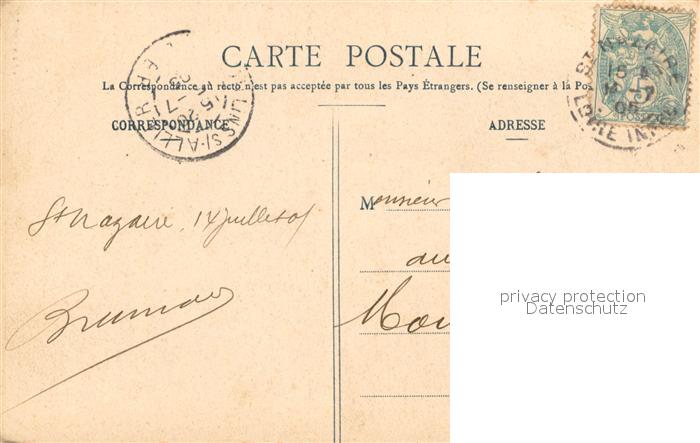 CARTE POSTALE
La Correspondance au recto n'est pas acceptée par tous les Pays Étrangers. (Se renseigner à la Pos
CORRESPONDANCE
ADRESSE
ST NAZAIRE
LOIRE INF
Monsieur
St Nazaire, 14 juillet 05
au
Mou
privacy protection
Datenschutz